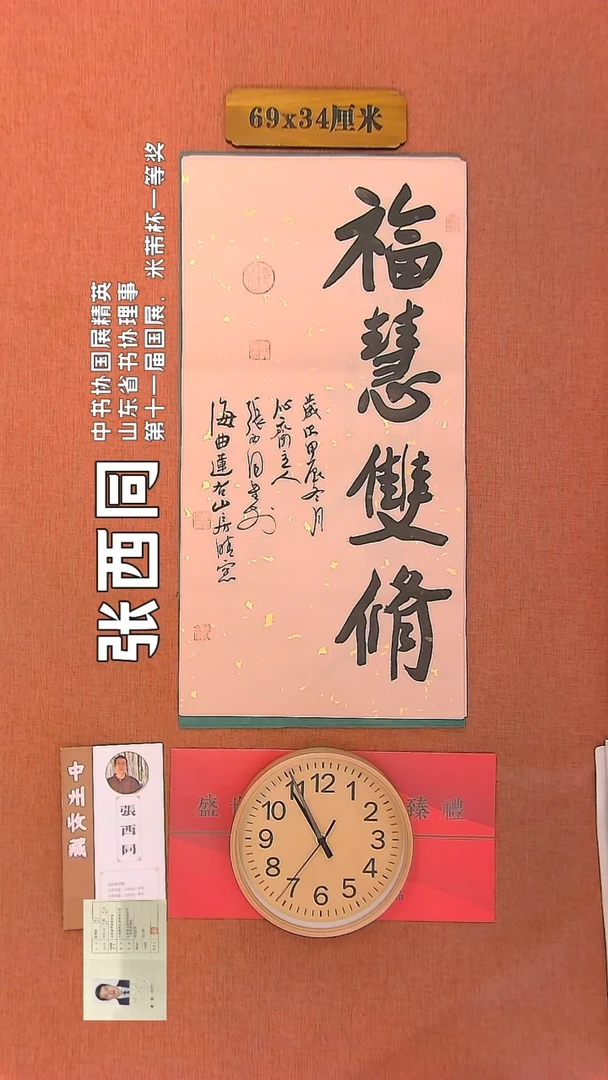 69x34厘米
福慧雙脩
歲在甲辰冬月
齋主人
張西同書於
海曲蓮右山房晴窓
中书协国展精英
山东省书协理事
第十一届国展，米芾杯一等奖
张西同
張西同
盛 臻禮
12
1
2
3
4
5
6
7
8
9
10
11